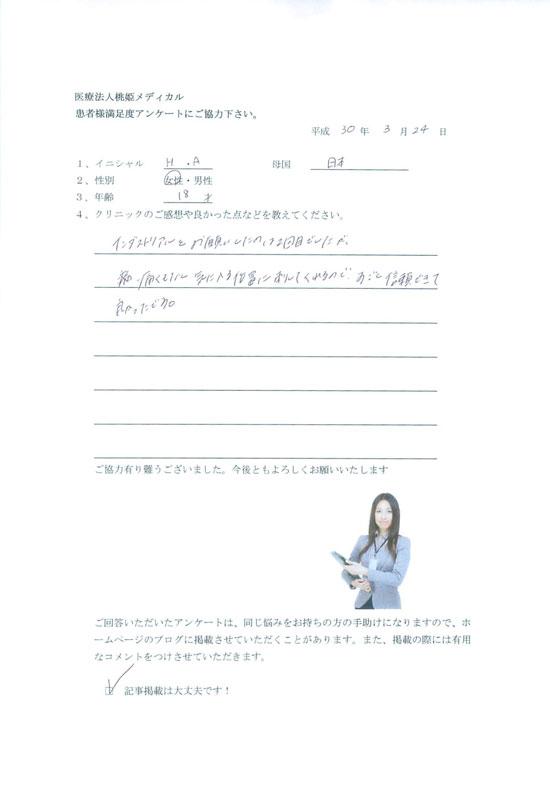 医療法人桃姫メディカル
患者様満足度アンケートにご協力下さい。
平成 30 年 3 月 24 日
1、イニシャル H.A 母国 日本
2、性別 女性・男性
3、年齢 18 才
4、クリニックのご感想や良かった点などを教えてください。
インダストリアルを お願いしたのは2回目でしたが、
痛くもなく 気に入る位置に してくれるので、 信頼できて
良かったです。
ご協力有り難うございました。今後ともよろしくお願いいたします
ご回答いただいたアンケートは、同じ悩みをお持ちの方の手助けになりますので、ホ
ームページのブログに掲載させていただくことがあります。また、掲載の際には有用
なコメントをつけさせていただきます。
記事掲載は大丈夫です！